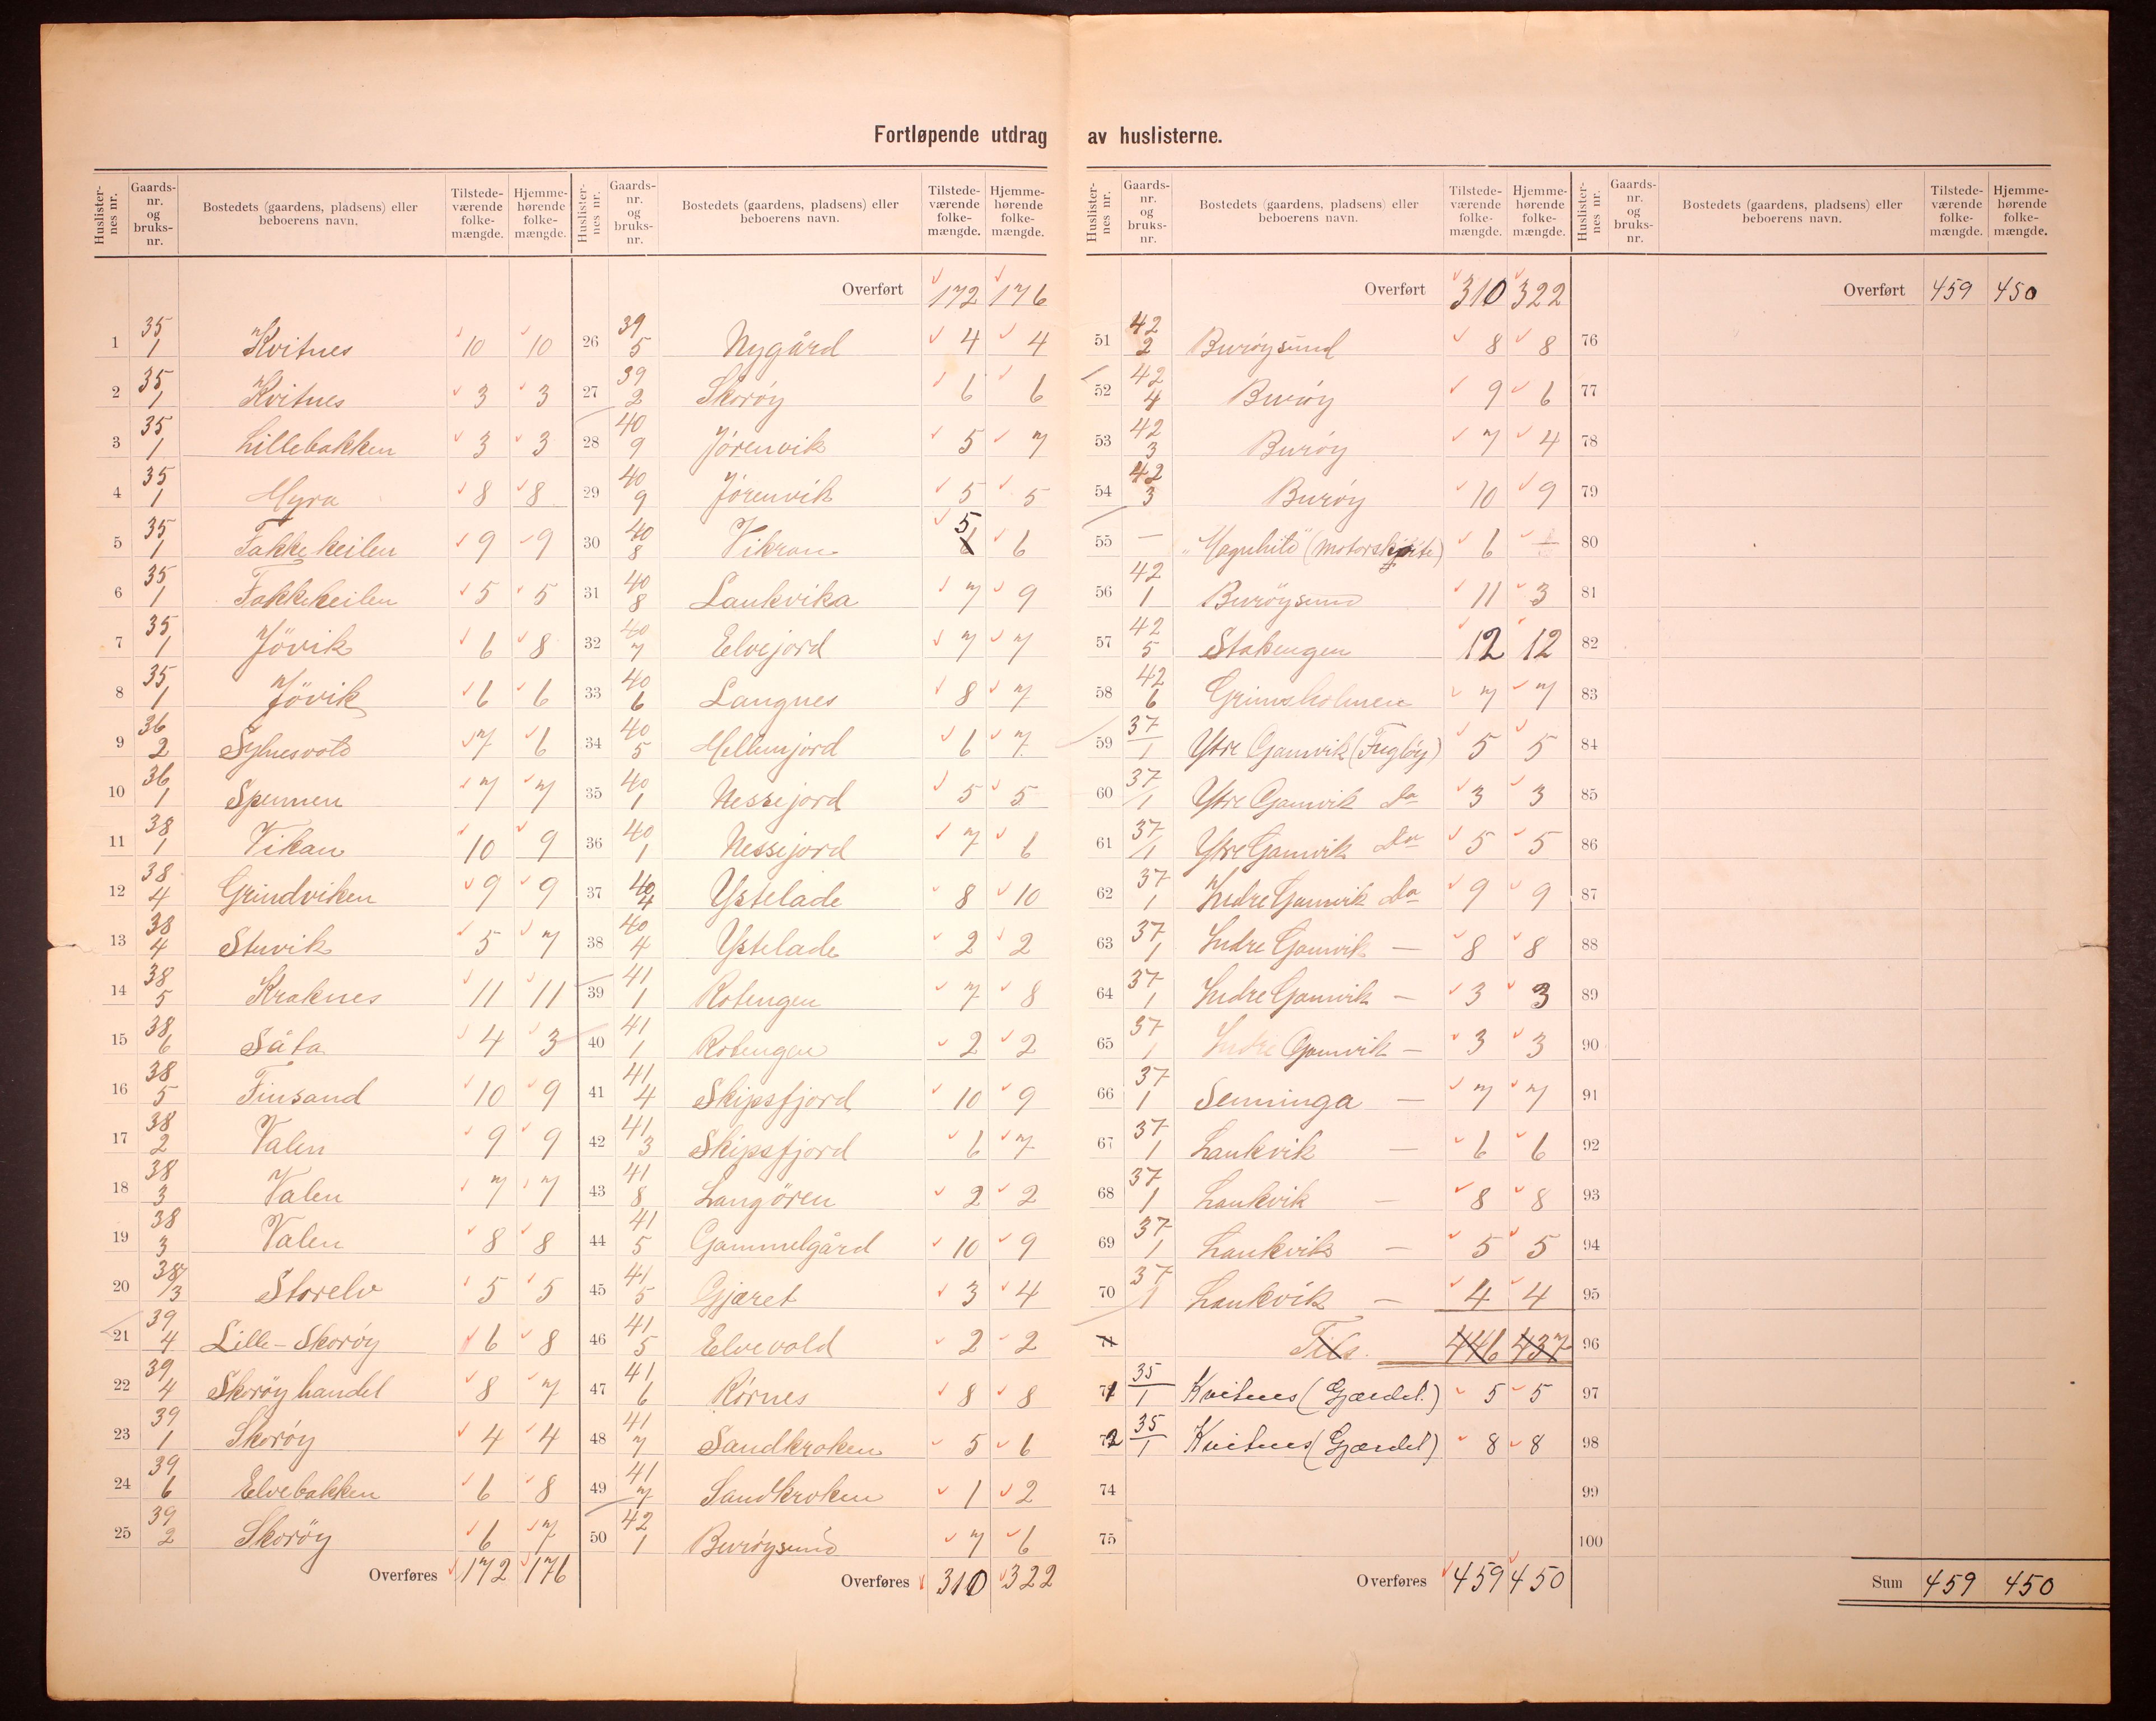 Fortløpende utdrag av huslisterne.
Huslister-nes nr. | Gaards-nr. og bruks-nr. | Bostedets (gaardens, pladsens) eller beboerens navn. | Tilstede-værende folke-mængde. | Hjemme-hørende folke-mængde.
1 35/1 Kvitnes 10 10
2 35/1 Kvitnes 3 3
3 35/1 Lillebakken 3 3
4 35/1 Myra 8 8
5 35/1 Fakkekeilen 9 9
6 35/1 Fakkekeilen 5 5
7 35/1 Jövik 6 8
8 35/1 Jövik 6 6
9 36/2 Sylnesvold 7 6
10 36/1 Spennen 7 7
11 38/1 Vikan 10 9
12 38/4 Grindviken 9 9
13 38/4 Stuvik 5 7
14 38/5 Kraknes 11 11
15 38/6 Såta 4 3
16 38/5 Finsand 10 9
17 38/2 Valen 9 9
18 38/3 Valen 7 7
19 38/3 Valen 8 8
20 38/3 Storelv 5 5
21 39/4 Lille-Skorøy 6 8
22 39/4 Skorøy handel 8 7
23 39/1 Skorøy 4 4
24 39/6 Elvebakken 6 8
25 39/2 Skorøy 6 7
Overføres 172 176
Huslister-nes nr. | Gaards-nr. og bruks-nr. | Bostedets (gaardens, pladsens) eller beboerens navn. | Tilstede-værende folke-mængde. | Hjemme-hørende folke-mængde.
Overført 172 176
26 39/5 Nygård 4 4
27 39/2 Skorøy 6 6
28 40/9 Jørenvik 5 7
29 40/9 Jørenvik 5 5
30 40/8 Vikran 5 6
31 40/8 Laukvika 7 9
32 40/7 Elvejord 7 7
33 40/6 Langnes 8 7
34 40/5 Mellemjord 6 7
35 40/1 Nessejord 5 5
36 40/1 Nessejord 7 6
37 40/4 Ystelade 8 10
38 40/4 Ystelade 2 2
39 41/1 Rotengen 7 8
40 41/1 Rotengen 2 2
41 41/4 Skipsfjord 10 9
42 41/3 Skipsfjord 6 7
43 41/8 Langören 2 2
44 41/5 Gammelgård 10 9
45 41/5 Gjæret 3 4
46 41/5 Elvevold 2 2
47 41/6 Rörnes 8 8
48 41/7 Sandkroken 5 6
49 41/7 Sandkroken 1 2
50 42/1 Burøysund 7 6
Overføres 310 322
Huslister-nes nr. | Gaards-nr. og bruks-nr. | Bostedets (gaardens, pladsens) eller beboerens navn. | Tilstede-værende folke-mængde. | Hjemme-hørende folke-mængde.
Overført 310 322
51 42/2 Burøysund 8 8
52 42/4 Burøy 9 6
53 42/3 Burøy 7 4
54 42/3 Burøy 10 9
55 — "Magnhild" (motorskøite) 6
56 42/1 Burøysund 11 3
57 42/5 Stakengen 12 12
58 42/6 Grimsholmen 7 7
59 37/1 Ytre Gamvik (Fugløy) 5 5
60 37/1 Ytre Gamvik Do 3 3
61 37/1 Ytre Gamvik Do 5 5
62 37/1 Indre Gamvik Do 9 9
63 37/1 Indre Gamvik — 8 8
64 37/1 Indre Gamvik — 3 3
65 37/1 Indre Gamvik — 3 3
66 37/1 Senninga — 7 7
67 37/1 Laukvik — 6 6
68 37/1 Laukvik — 8 8
69 37/1 Laukvik — 5 5
70 37/1 Laukvik — 4 4
71 Tils. 446 437
71 35/1 Kvitnes (Gjærdet) 5 5
72 35/1 Kvitnes (Gjærdet) 8 8
74
75
Overføres 459 450
Huslister-nes nr. | Gaards-nr. og bruks-nr. | Bostedets (gaardens, pladsens) eller beboerens navn. | Tilstede-værende folke-mængde. | Hjemme-hørende folke-mængde.
Overført 459 450
76
77
78
79
80
81
82
83
84
85
86
87
88
89
90
91
92
93
94
95
96
97
98
99
100
Sum 459 450